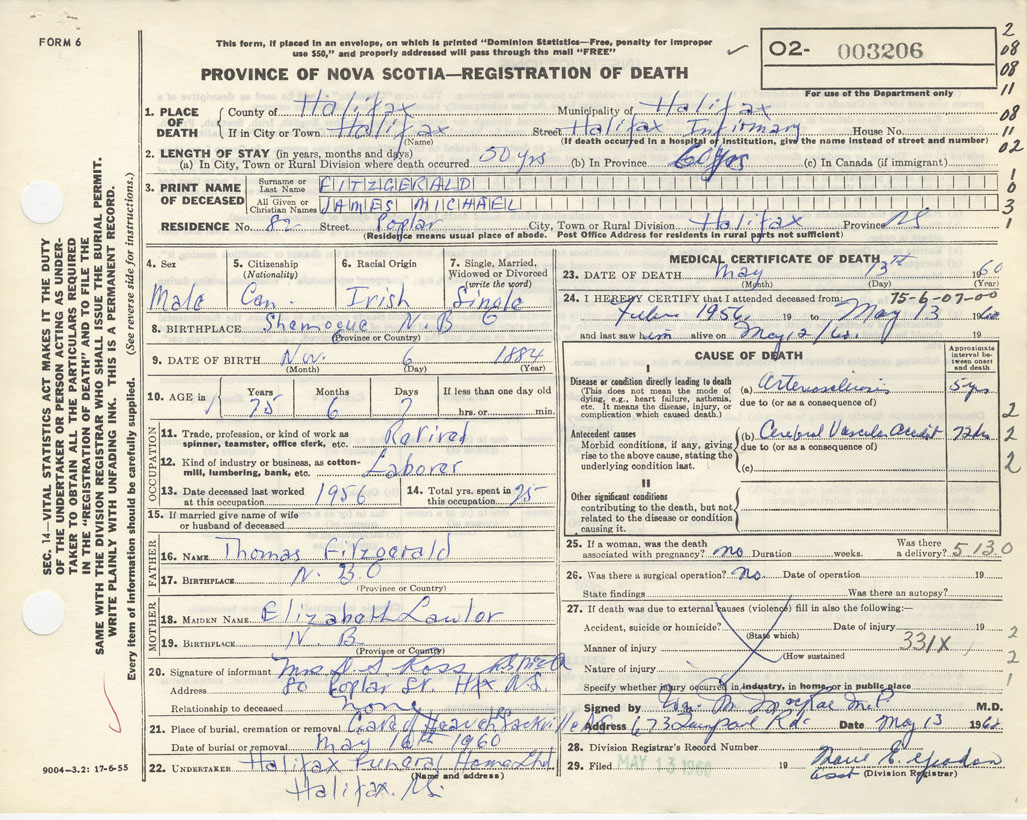 FORM 6
This form, if placed in an envelope, on which is printed "Dominion Statistics—Free, penalty for improper
use $50," and properly addressed will pass through the mail "FREE"
O2- 003206
PROVINCE OF NOVA SCOTIA—REGISTRATION OF DEATH
For use of the Department only
2
08
08
11
08
11
02
1. PLACE OF DEATH
County of Halifax Municipality of Halifax
If in City or Town Halifax Street Halifax Infirmary House No.
(Name) (If death occurred in a hospital of institution, give the name instead of street and number)
2. LENGTH OF STAY (in years, months and days)
(a) In City, Town or Rural Division where death occurred 50 yrs (b) In Province 60 yrs (c) In Canada (if immigrant)
3. PRINT NAME OF DECEASED
Surname or Last Name FITZGERALD
All Given or Christian Names JAMES MICHAEL
1
0
3
1
RESIDENCE No. 82 Street Poplar City, Town or Rural Division Halifax Province NS
(Residence means usual place of abode. Post Office Address for residents in rural parts not sufficient)
4. Sex Male
5. Citizenship (Nationality) Can.
6. Racial Origin Irish
7. Single, Married, Widowed or Divorced (write the word) Single 6
8. BIRTHPLACE Shemogue N.B
(Province or Country)
9. DATE OF BIRTH Nov. 6 1884
(Month) (Day) (Year)
10. AGE in
Years 75 Months 6 Days 7 If less than one day old
hrs. or min.
OCCUPATION
11. Trade, profession, or kind of work as spinner, teamster, office clerk, etc. Retired
12. Kind of industry or business, as cotton-mill, lumbering, bank, etc. Laborer
13. Date deceased last worked at this occupation 1956
14. Total yrs. spent in this occupation 25
15. If married give name of wife or husband of deceased
FATHER
16. NAME Thomas Fitzgerald
17. BIRTHPLACE N. B. O
(Province or Country)
MOTHER
18. MAIDEN NAME Elizabeth Lawlor
19. BIRTHPLACE N B
(Province or Country)
20. Signature of informant Mrs Ross
Address 80 Poplar St. Hfx N.S.
Relationship to deceased none
21. Place of burial, cremation or removal Gate of Heaven Sackville NS
Date of burial or removal May 16th 1960
22. UNDERTAKER Halifax Funeral Home Ltd
(Name and address)
Halifax. NS
MEDICAL CERTIFICATE OF DEATH
23. DATE OF DEATH May 13th 1960
(Month) (Day)
24. I HEREBY CERTIFY that I attended deceased from: 75-6-07-00
1956 19 to May 13 1960
and last saw him alive on May 12/60. 19
CAUSE OF DEATH
Approximate interval between onset and death
I
Disease or condition directly leading to death
(This does not mean the mode of dying, e.g., heart failure, asthenia, etc. It means the disease, injury, or complication which caused death.)
(a) Arteriosclerosis 5 yrs
due to (or as a consequence of)
Antecedent causes
Morbid conditions, if any, giving rise to the above cause, stating the underlying condition last.
(b) Cerebral Vascular Accident 72 hrs
due to (or as a consequence of)
(c)
2
2
2
II
Other significant conditions
contributing to the death, but not related to the disease or condition causing it.
25. If a woman, was the death associated with pregnancy? no Duration weeks. Was there a delivery? 5 13.0
26. Was there a surgical operation? no. Date of operation 19
State findings Was there an autopsy?
27. If death was due to external causes (violence) fill in also the following:—
Accident, suicide or homicide? Date of injury 19
(State which)
Manner of injury 331X
(How sustained
Nature of injury
Specify whether injury occurred in industry, in home, or in public place
2
2
1
Signed by Wm. M. MacRae M.D. M.D.
Address 673 Rd. Date May 13 1960
28. Division Registrar's Record Number
29. Filed MAY 13 1960 19
Asst (Division Registrar)
SEC. 14—VITAL STATISTICS ACT MAKES IT THE DUTY
OF THE UNDERTAKER OR PERSON ACTING AS UNDER-
TAKER TO OBTAIN ALL THE PARTICULARS REQUIRED
IN THE "REGISTRATION OF DEATH" AND TO FILE THE
SAME WITH THE DIVISION REGISTRAR WHO SHALL ISSUE THE BURIAL PERMIT.
WRITE PLAINLY WITH UNFADING INK. THIS IS A PERMANENT RECORD.
Every item of information should be carefully supplied. (See reverse side for instructions.)
9004—3.2: 17-6-55